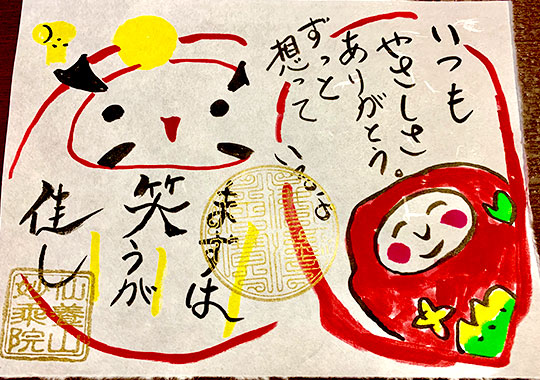 いつも
やさしさ
ありがとう。
ずっと
想って
いるよ
まずは
笑うが
佳し